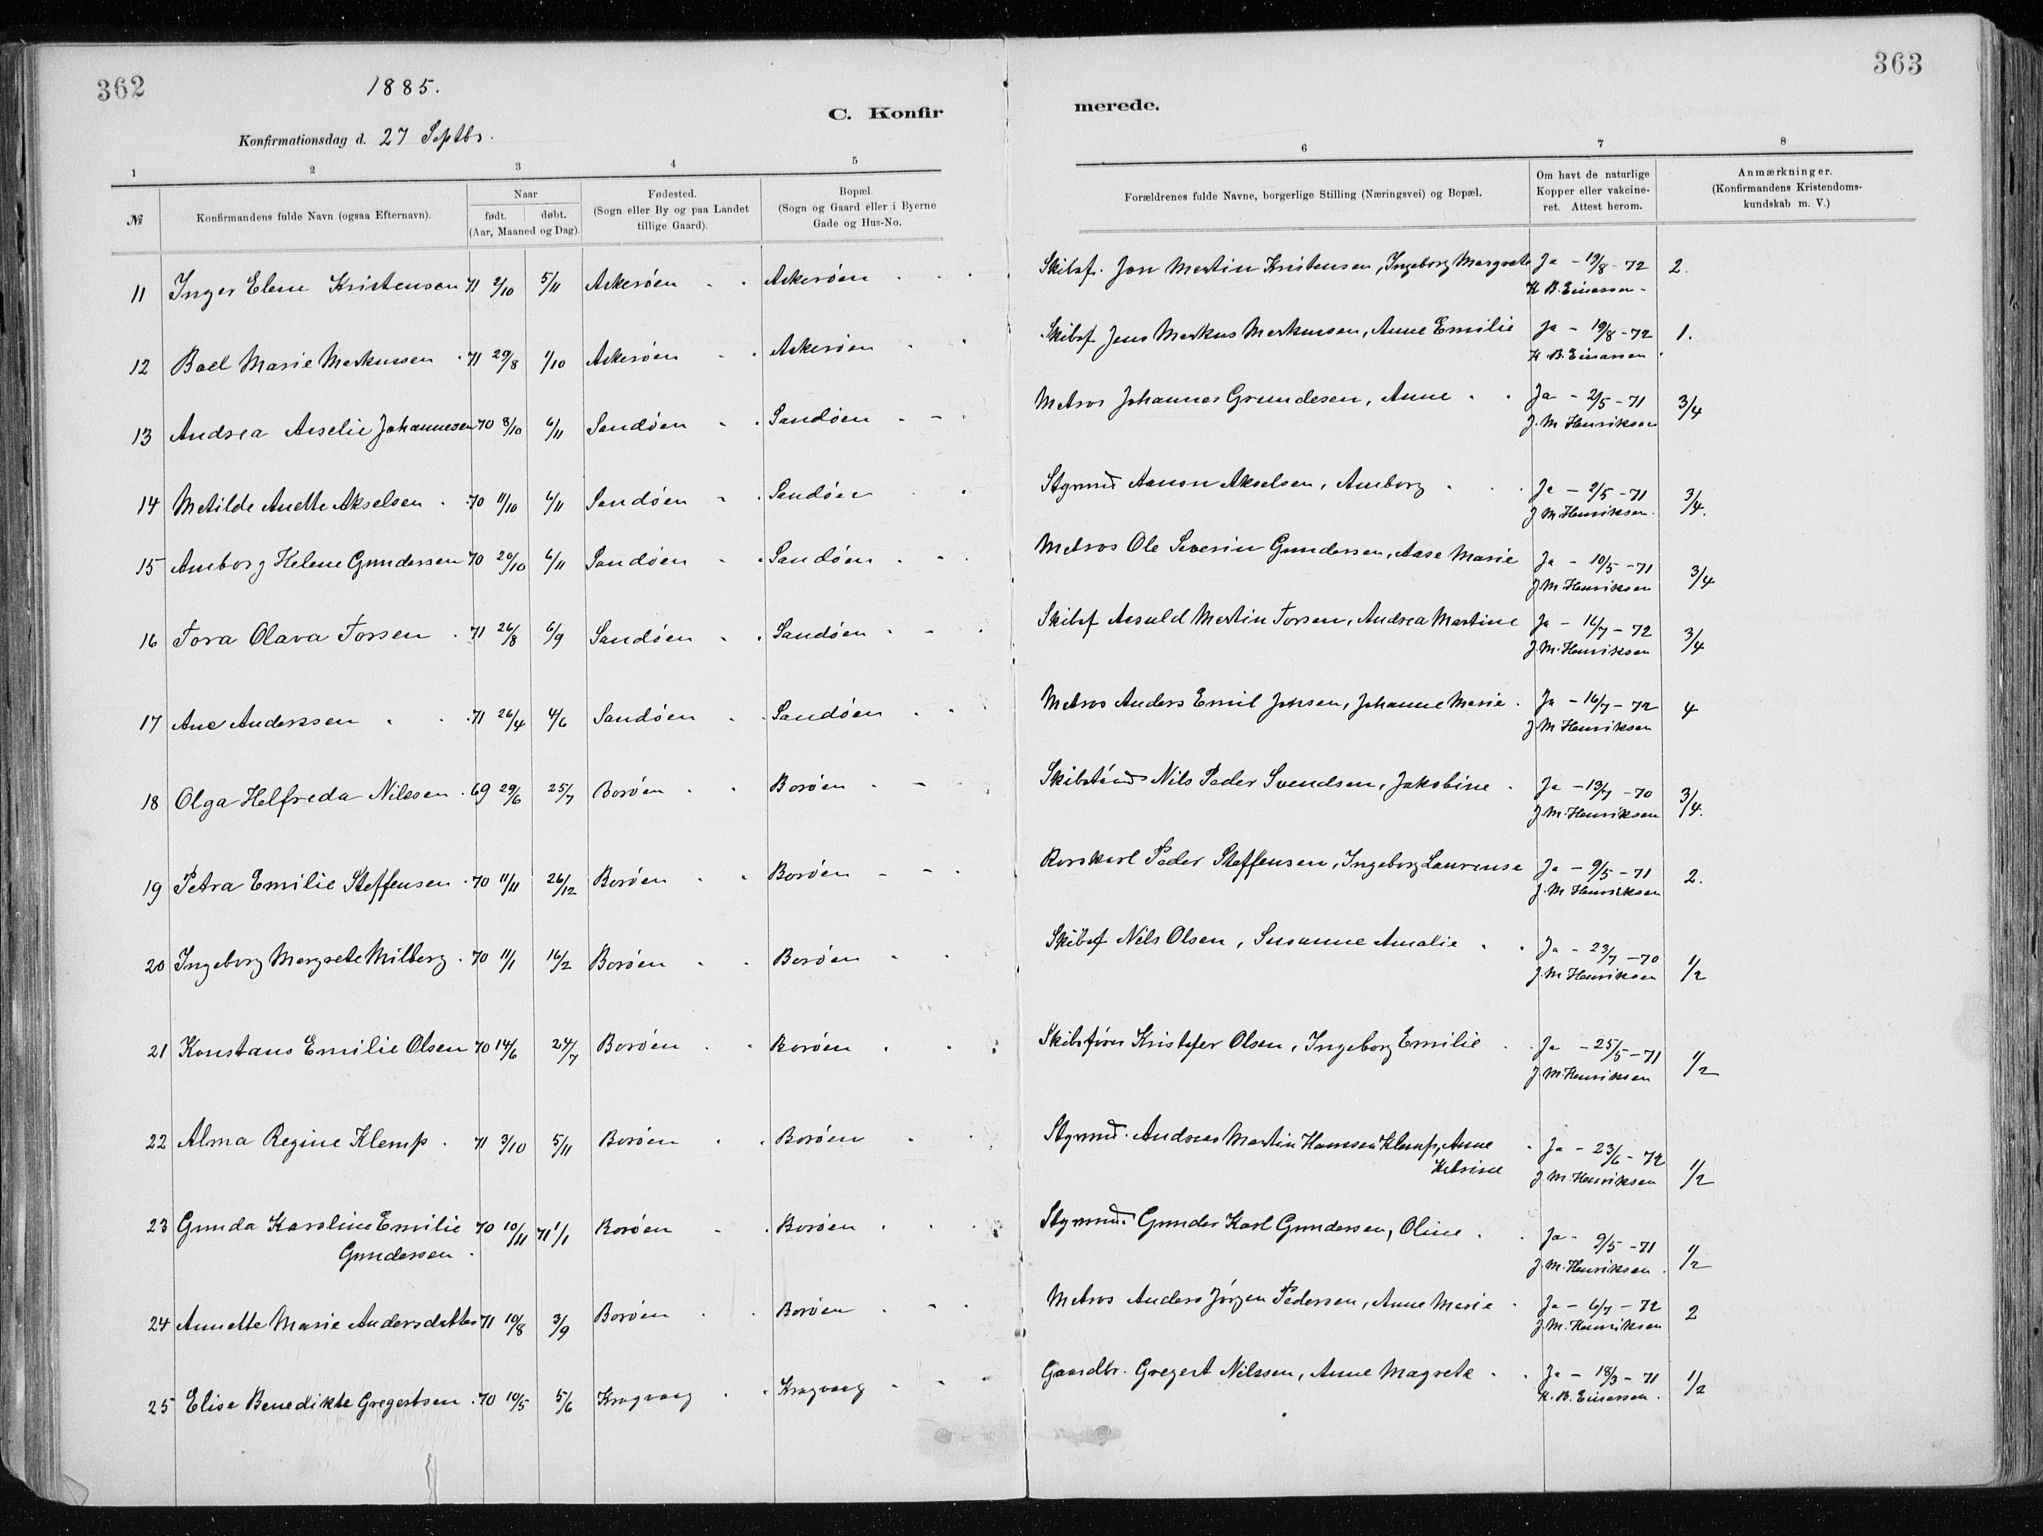 362
1885.
363
C. Konfir
merede.
Konfirmationsdag d. 27 Septbr.
1 2 3 4 5 6 7 8
№ Konfirmandens fulde Navn (ogsaa Efternavn).
Naar
født. døbt.
(Aar, Maaned og Dag).
Fødested.
(Sogn eller By og paa Landet
tillige Gaard).
Bopæl.
(Sogn og Gaard eller i Byerne
Gade og Hus-No.
Forældrenes fulde Navne, borgerlige Stilling (Næringsvei) og Bopæl.
Om havt de naturlige
Kopper eller vakcine-
ret. Attest herom.
Anmærkninger.
(Konfirmandens Kristendoms-
kundskab m. V.)
11 Inger Elene Kristensen 71 2/10 5/11 Askerøen Askerøen Skibsf. Jon Martin Kristensen, Ingeborg Margrete Ja - 19/8 - 72 2.
K B. Einersen
12 Boel Marie Markussen 71 29/8 1/10 Askerøen Askerøen Skibsf Jens Markus Markussen, Anne Emilie Ja - 19/8 - 72 1.
K. B. Einersen
13 Andrea Asselie Johannesen 70 8/10 6/11 Sandøen Sandøen Matros Johannes Grundesen, Anne Ja - 2/5 - 71 3/4
J. M Henriksen
14 Matilde Anette Akselsen 70 11/10 6/11 Sandøen Sandøen Stgrmd Aanon Akselsen, Amborg Ja - 2/5 - 71 3/4.
J M. Henriksen.
15 Amborg Helene Gundersen 70 20/10 6/11 Sandøen Sandøen Matros Ole Severin Gundersen, Aase Marie Ja - 10/5 - 71 3/4
J M Henriksen
16 Tora Olava Torsen 71 26/8 6/9 Sandøen Sandøen Skibsf Asuld Martin Torsen, Andrea Martine Ja - 16/7 - 72 3/4
J. M. Henriksen
17 Ane Anderssen 71 26/4 4/6 Sandøen Sandøen Matros Anders Emil Jensen, Johanne Marie Ja - 16/7 - 72 4
J M Henriksen
18 Olga Helfreda Nilssen 69 29/6 25/7 Borøen Borøen Nils Peder Svendsen, Jakobine Ja - 13/7 - 70 3/4.
J. M. Henriksen
19 Petra Emilie Steffensen 70 11/11 26/12 Borøen Borøen Rorskarl Peder Steffensen, Ingeborg Laurense Ja - 9/5 - 71 2.
J. M. Henriksen
20 Ingeborg Margrete Milberg 70 11/1 16/2 Borøen Borøen Skibsf Nils Olsen, Susanne Amalie Ja - 23/7 - 70 1/2
J. M Henriksen
21 Konstans Emilie Olsen 70 14/6 24/7 Borøen Borøen Skibsfører Kristofer Olsen, Ingeborg Emilie Ja - 25/5 - 71 1/2
J. M. Henriksen
22 Alma Regine Klemp 71 3/10 5/11 Borøen Borøen Stgrmd. Andreas Martin Hansen Klemp, Anne Ja - 23/6 - 72 1/2
Katrine J. M. Henriksen
23 Gunda Karoline Emilie 70 10/11 71 1/1 Borøen Borøen Stgrmd. Gunder Karl Gundersen, Oline Ja - 9/5 - 71 1/2
Gundersen J. M. Henriksen
24 Annette Marie Andersdatter 71 10/8 3/9 Borøen Borøen Matros Anders Jørgen Pedersen, Anne Marie Ja - 6/7 - 72 2
J. M. Henriksen
25 Elise Benedikte Gregertsen 70 10/5 5/6 Kragvaag Kragvaag Gaardbr. Gregert Nilssen, Anne Magrete Ja - 18/3 - 71 1/2
K. B. Einersen.